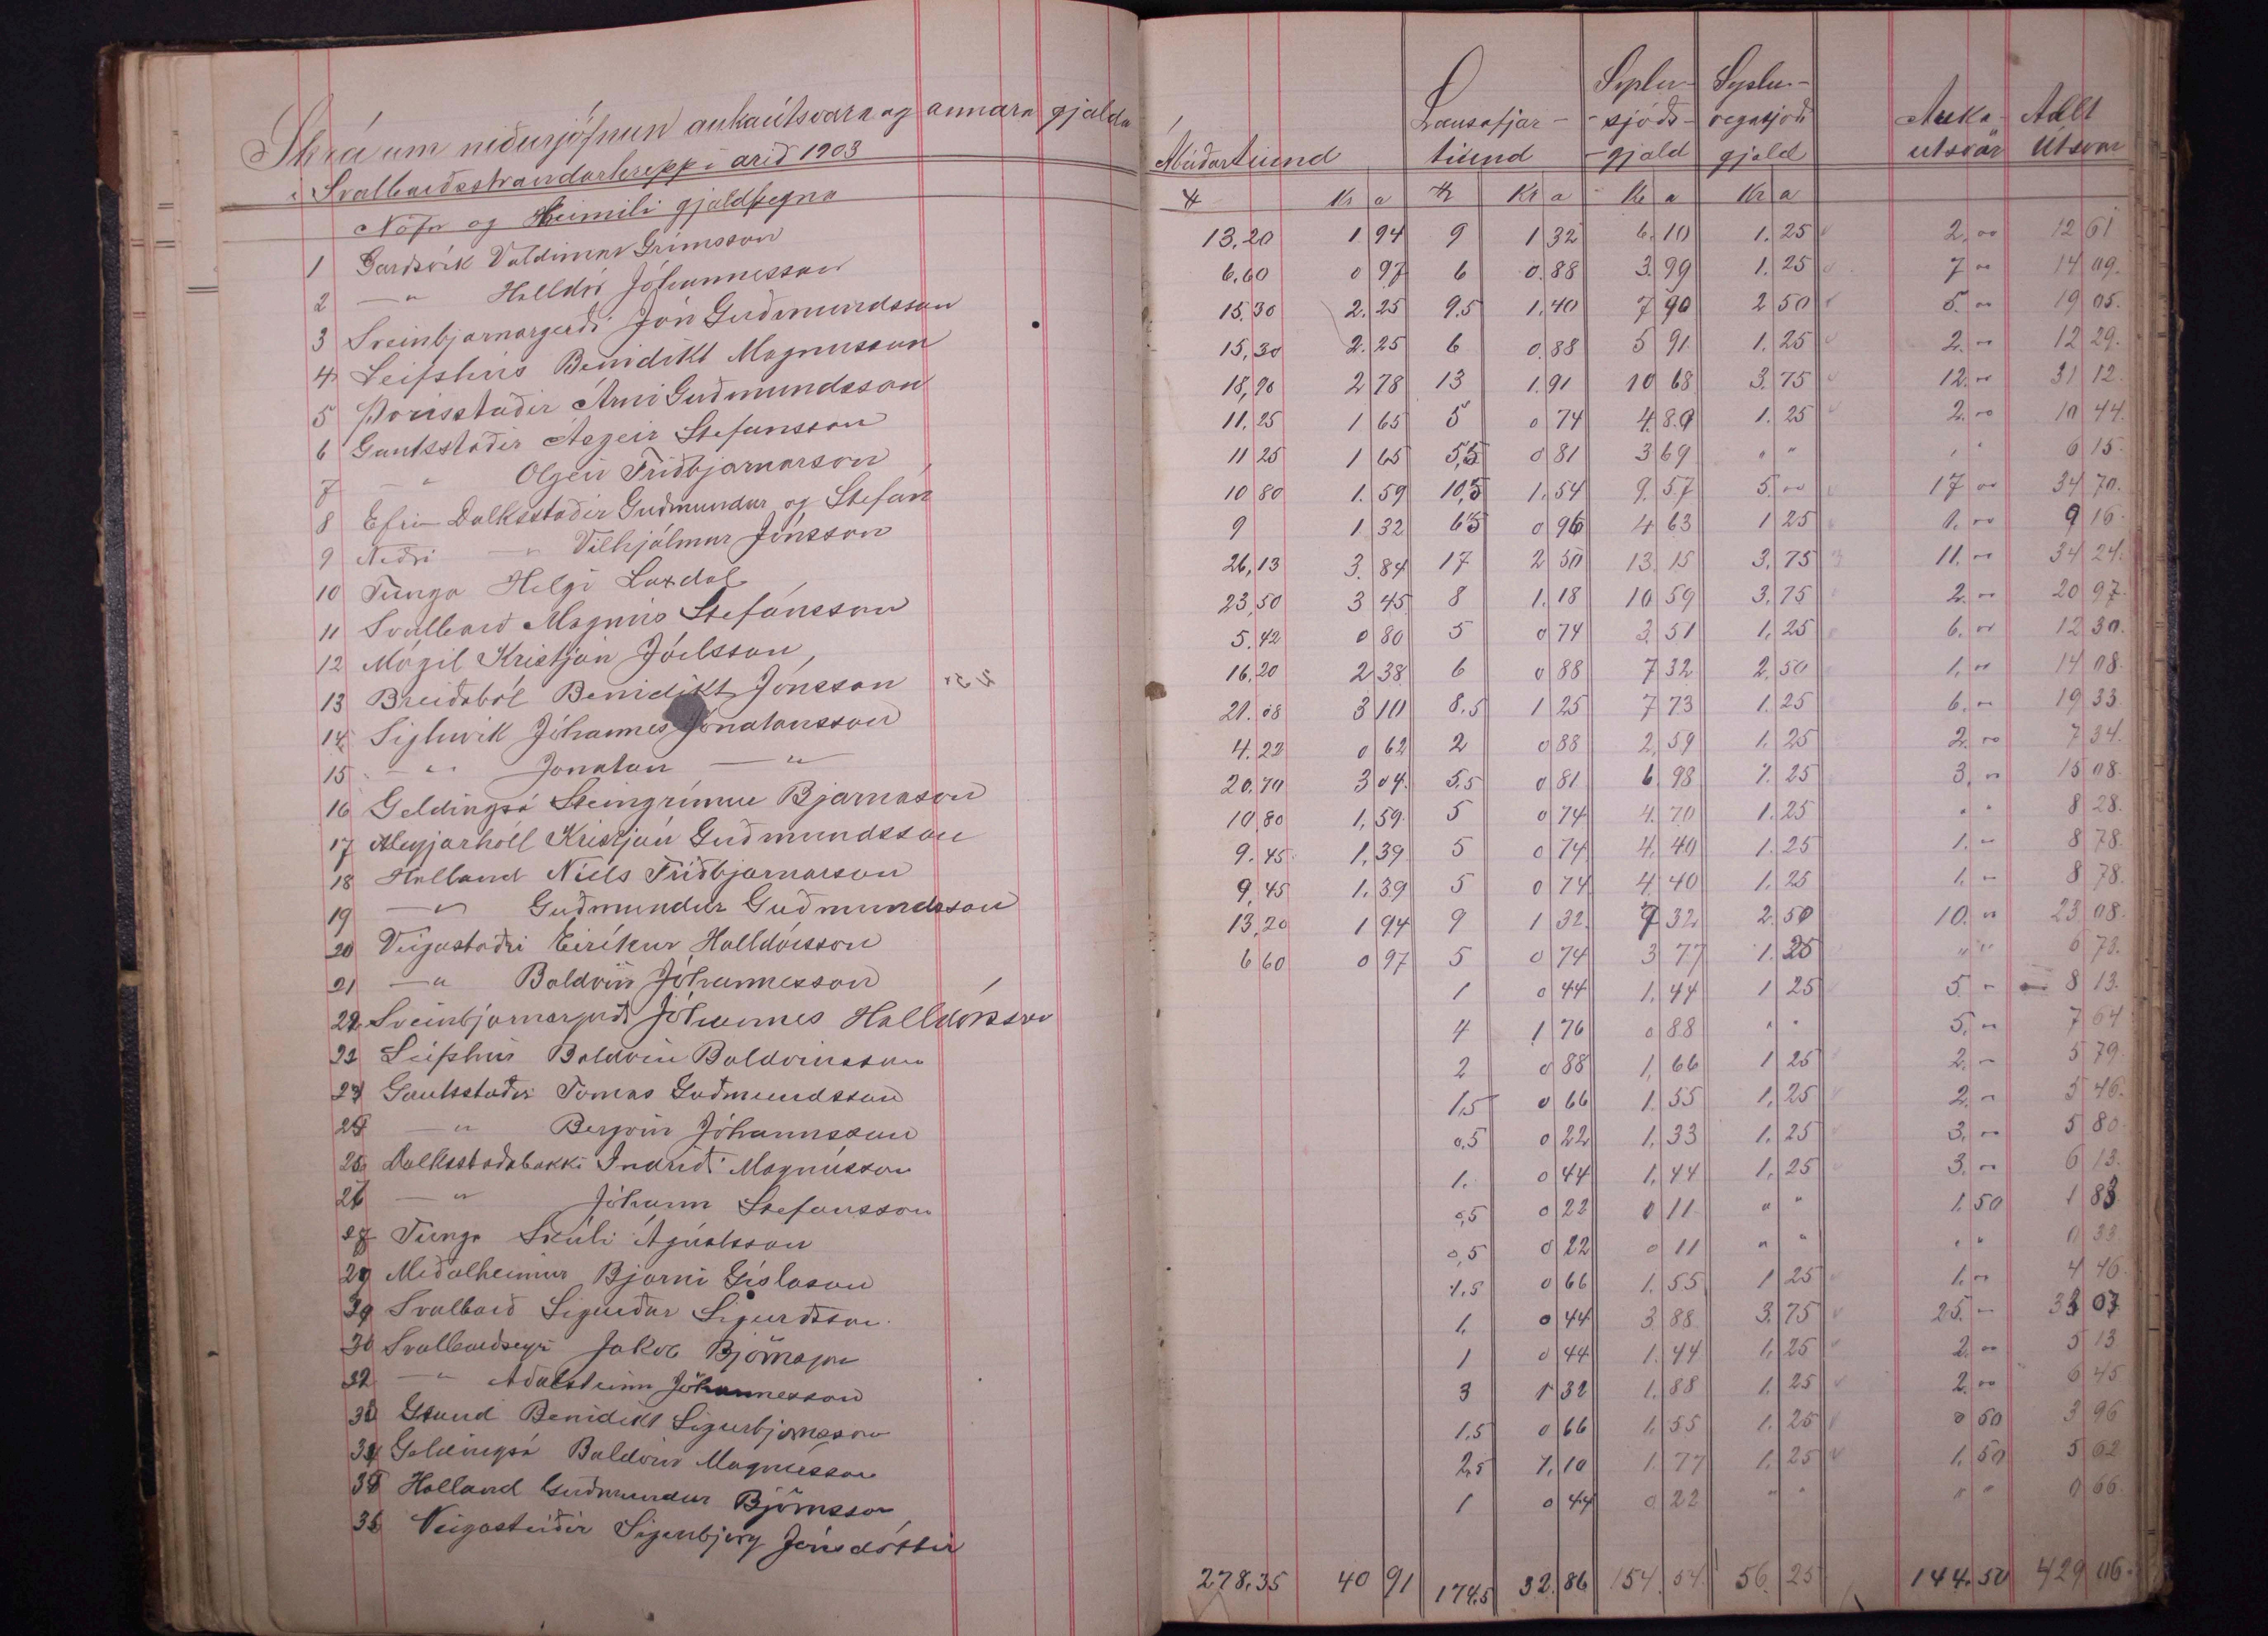 Skrá um niðurjöfnun aukaútsvara og annara gjalda
í Svalbarðsstrandarhreppi árið 1903
Nöfn og Heimili gjaldþegna
1 Garðsvík Valdimar Grímsson
2 —„— Halldór Jóhannesson
3 Sveinbjarnargerði Jón Guðmundsson
4 Leifshús Benidikt Magnusson
5 Þórisstaðir Árni Guðmundsson
6 Gautsstaðir Ásgeir Stefánsson
7 —„— Olgeir Friðbjarnarson
8 Efri-Dálksstaðir Guðmundur og Stefán
9 Neðri —„— Vilhjálmur Jónsson
10 Tunga Helgi Laxdal
11 Svalbarð Magnús Stefánsson
12 Mógil Kristján Jóelsson
13 Breiðaból Benidikt Jónsson
14 Sigluvík Jóhannes Jónatansson
15 —„— Jonatan —„—
16 Geldingsá Steingrímur Bjarnason
17 Meyjarhóll Kristján Guðmundsson
18 Halland Níels Friðbjarnarson
19 —„— Guðmundur Guðmundsson
20 Veigastaðir Eiríkur Halldórsson
21 —„— Baldvin Jóhannesson
22 Sveinbjarnargerði Jóhannes Halldórsson
23 Leifshús Baldvin Baldvinsson
24 Gautsstaðir Tomas Guðmundsson
25 —„— Bergvin Jóhannsson
25 Dálksstaðabakki Indriði Magnússon
26 —„— Jóhann Stefansson
27 Tunga Skúli Ágústsson
29 Meðalheimur Bjarni Gíslason
30 Svalbarð Sigurður Sigurðsson
30 Svalbarðseyri Jakob Björnsson
32 —„— Aðalsteinn Jóhannesson
33 Grund Benidikt Sigurbjörnsson
34 Geldingsá Baldvin Magnússon
35 Halland Guðmundur Björnsson
36 Veigastaðir Sigurbjörg Jónsdóttir
Ábúðartíund Lausafjár-tíund Sýslu-sjóðs-gjald Sýslu-vegasjóðs gjald Auka-útsvar Allt Útsvar
Kr a Kr a Kr a Kr a
13,20 1.94 9 1 32 6.10 1.25 2,00 12 61
6,60 0 97 6 0.88 3.99 1.25 7 00 14 09.
15,30 2.25 9.5 1,40 7 90 2 50 5.00 19 05.
15,30 2.25 6 0.88 5 91 1.25 2.00 12 29.
18,90 2 78 13 1.91 10 68 3.75 12.00 31 12
11,25 1 65 5 0 74 4.80 1.25 2.00 10 44.
11 25 1 65 5,5 0 81 3 69 „ „ „ „ 6 15
10 80 1.59 10,5 1.54 9.57 5.00 17 00 34 70.
9 1.32 6,5 0 96 4 63 1 25 1.00 9 16
26,13 3.84 17 2 50 13.15 3.75 11.00 34 24.
23,50 3 45 8 1.18 10 59 3,75 2.00 20 97.
5.42 0 80 5 0 74 3,51 1,25 6.00 12 30.
16,20 2 38 6 0 88 7 32 2,50 1,00 14 08.
21.08 3 10 8.5 1 25 7 73 1.25 6.00 19 33
4.22 0 62 2 0 88 2,59 1.25 2.00 7 34.
20.70 3 04. 5.5 0 81 6.98 1.25 3.00 15 08.
10,80 1,59. 5 0 74 4.70 1.25 „ „ 8 28.
9.45 1,39 5 0 74 4.40 1.25 1.00 8 78.
9,45 1.39 5 0 74 4.40 1.25 1.00 8 78.
13,20 1 94 9 1 32 7 32 2.50 10.00 23 08.
6 60 0 97 5 0 74 3 77 1.25 „ „ 6 73.
1 0 44 1,44 1 25 5 00 8 13.
4 1 76 0 88 „ „ 5.00 7 64
2 0 88 1,66 1 25 2.00 5 79
1,5 0 66 1.55 1.25 2.00 5 46.
0,5 0 22 1,33 1.25 3.00 5 80
1. 0 44 1,44 1,25 3.00 6 13.
0,5 0 22 0 11 „ „ 1.50 1 83
0,5 0 22 0 11 „ „ „ „ 0 33
1.5 0 66 1.55 1 25 1.00 4 46.
1. 0 44 3 88 3.75 25.00 33 07
1 0 44 1.44 1.25 2.00 5 13
3 1 32 1.88 1.25 2.00 6 45
1.5 0 66 1.55 1.25 0 50 3 96
2,5 1.10 1.77 1.25 1.50 5 62
1 0 44 0 22 „ „ „ „ 0 66.
278.35 40 91 174,5 32.86 154.54 56 25 144.50 429 06.